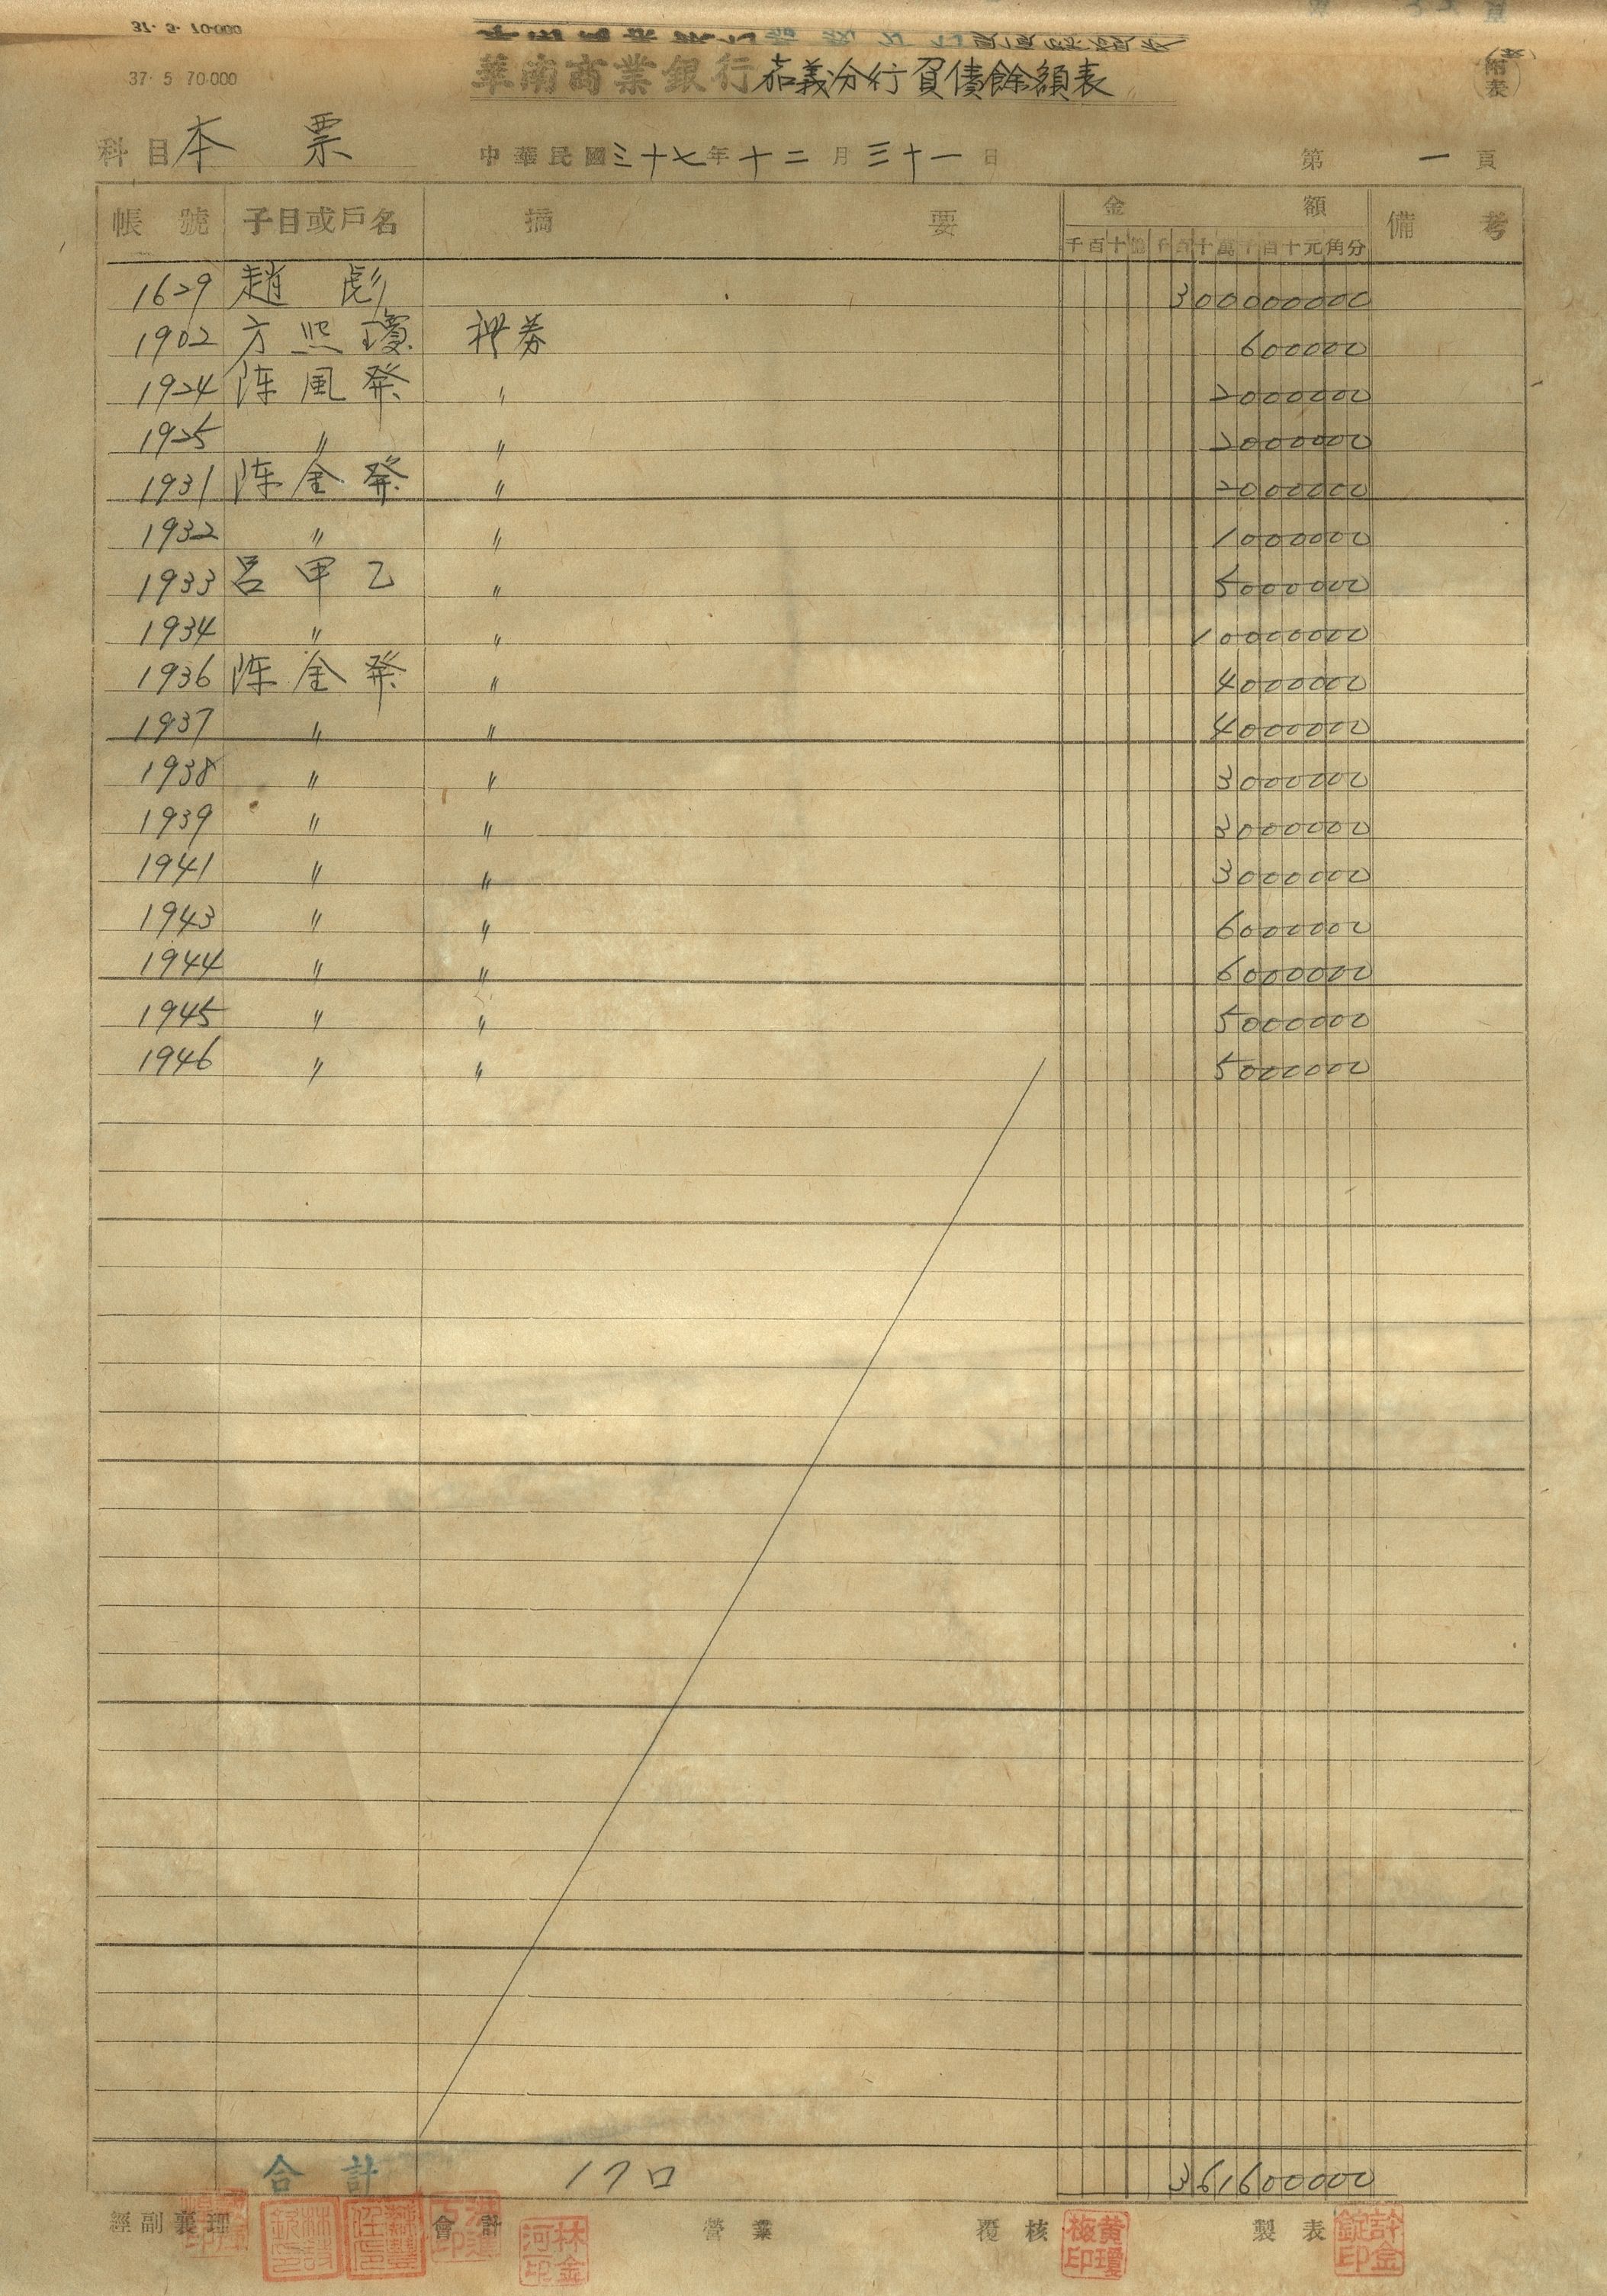 37· 5 70·000
華南商業銀行嘉義分行負債餘額表
附表
科目 本票 中華民國三十七年十二月三十一日 第一頁
帳號 子目或戶名 摘要 金額 備考
千百十億千百十萬千百十元角分
1629 趙彪 300000000
1902 方熙瓊 禮券 600000
1924 陈風発 〃 2000000
1925 〃 〃 2000000
1931 陈金発 〃 2000000
1932 〃 〃 1000000
1933 呂甲乙 〃 5000000
1934 〃 〃 10000000
1936 陈金発 〃 4000000
1937 〃 〃 4000000
1938 〃 〃 3000000
1939 〃 〃 3000000
1941 〃 〃 3000000
1943 〃 〃 6000000
1944 〃 〃 6000000
1945 〃 〃 5000000
1946 〃 〃 5000000
合計 17口 361600000
經副襄理 會計 營業 覆核 製表
林金河印
黄瓊梅印
許金錠印